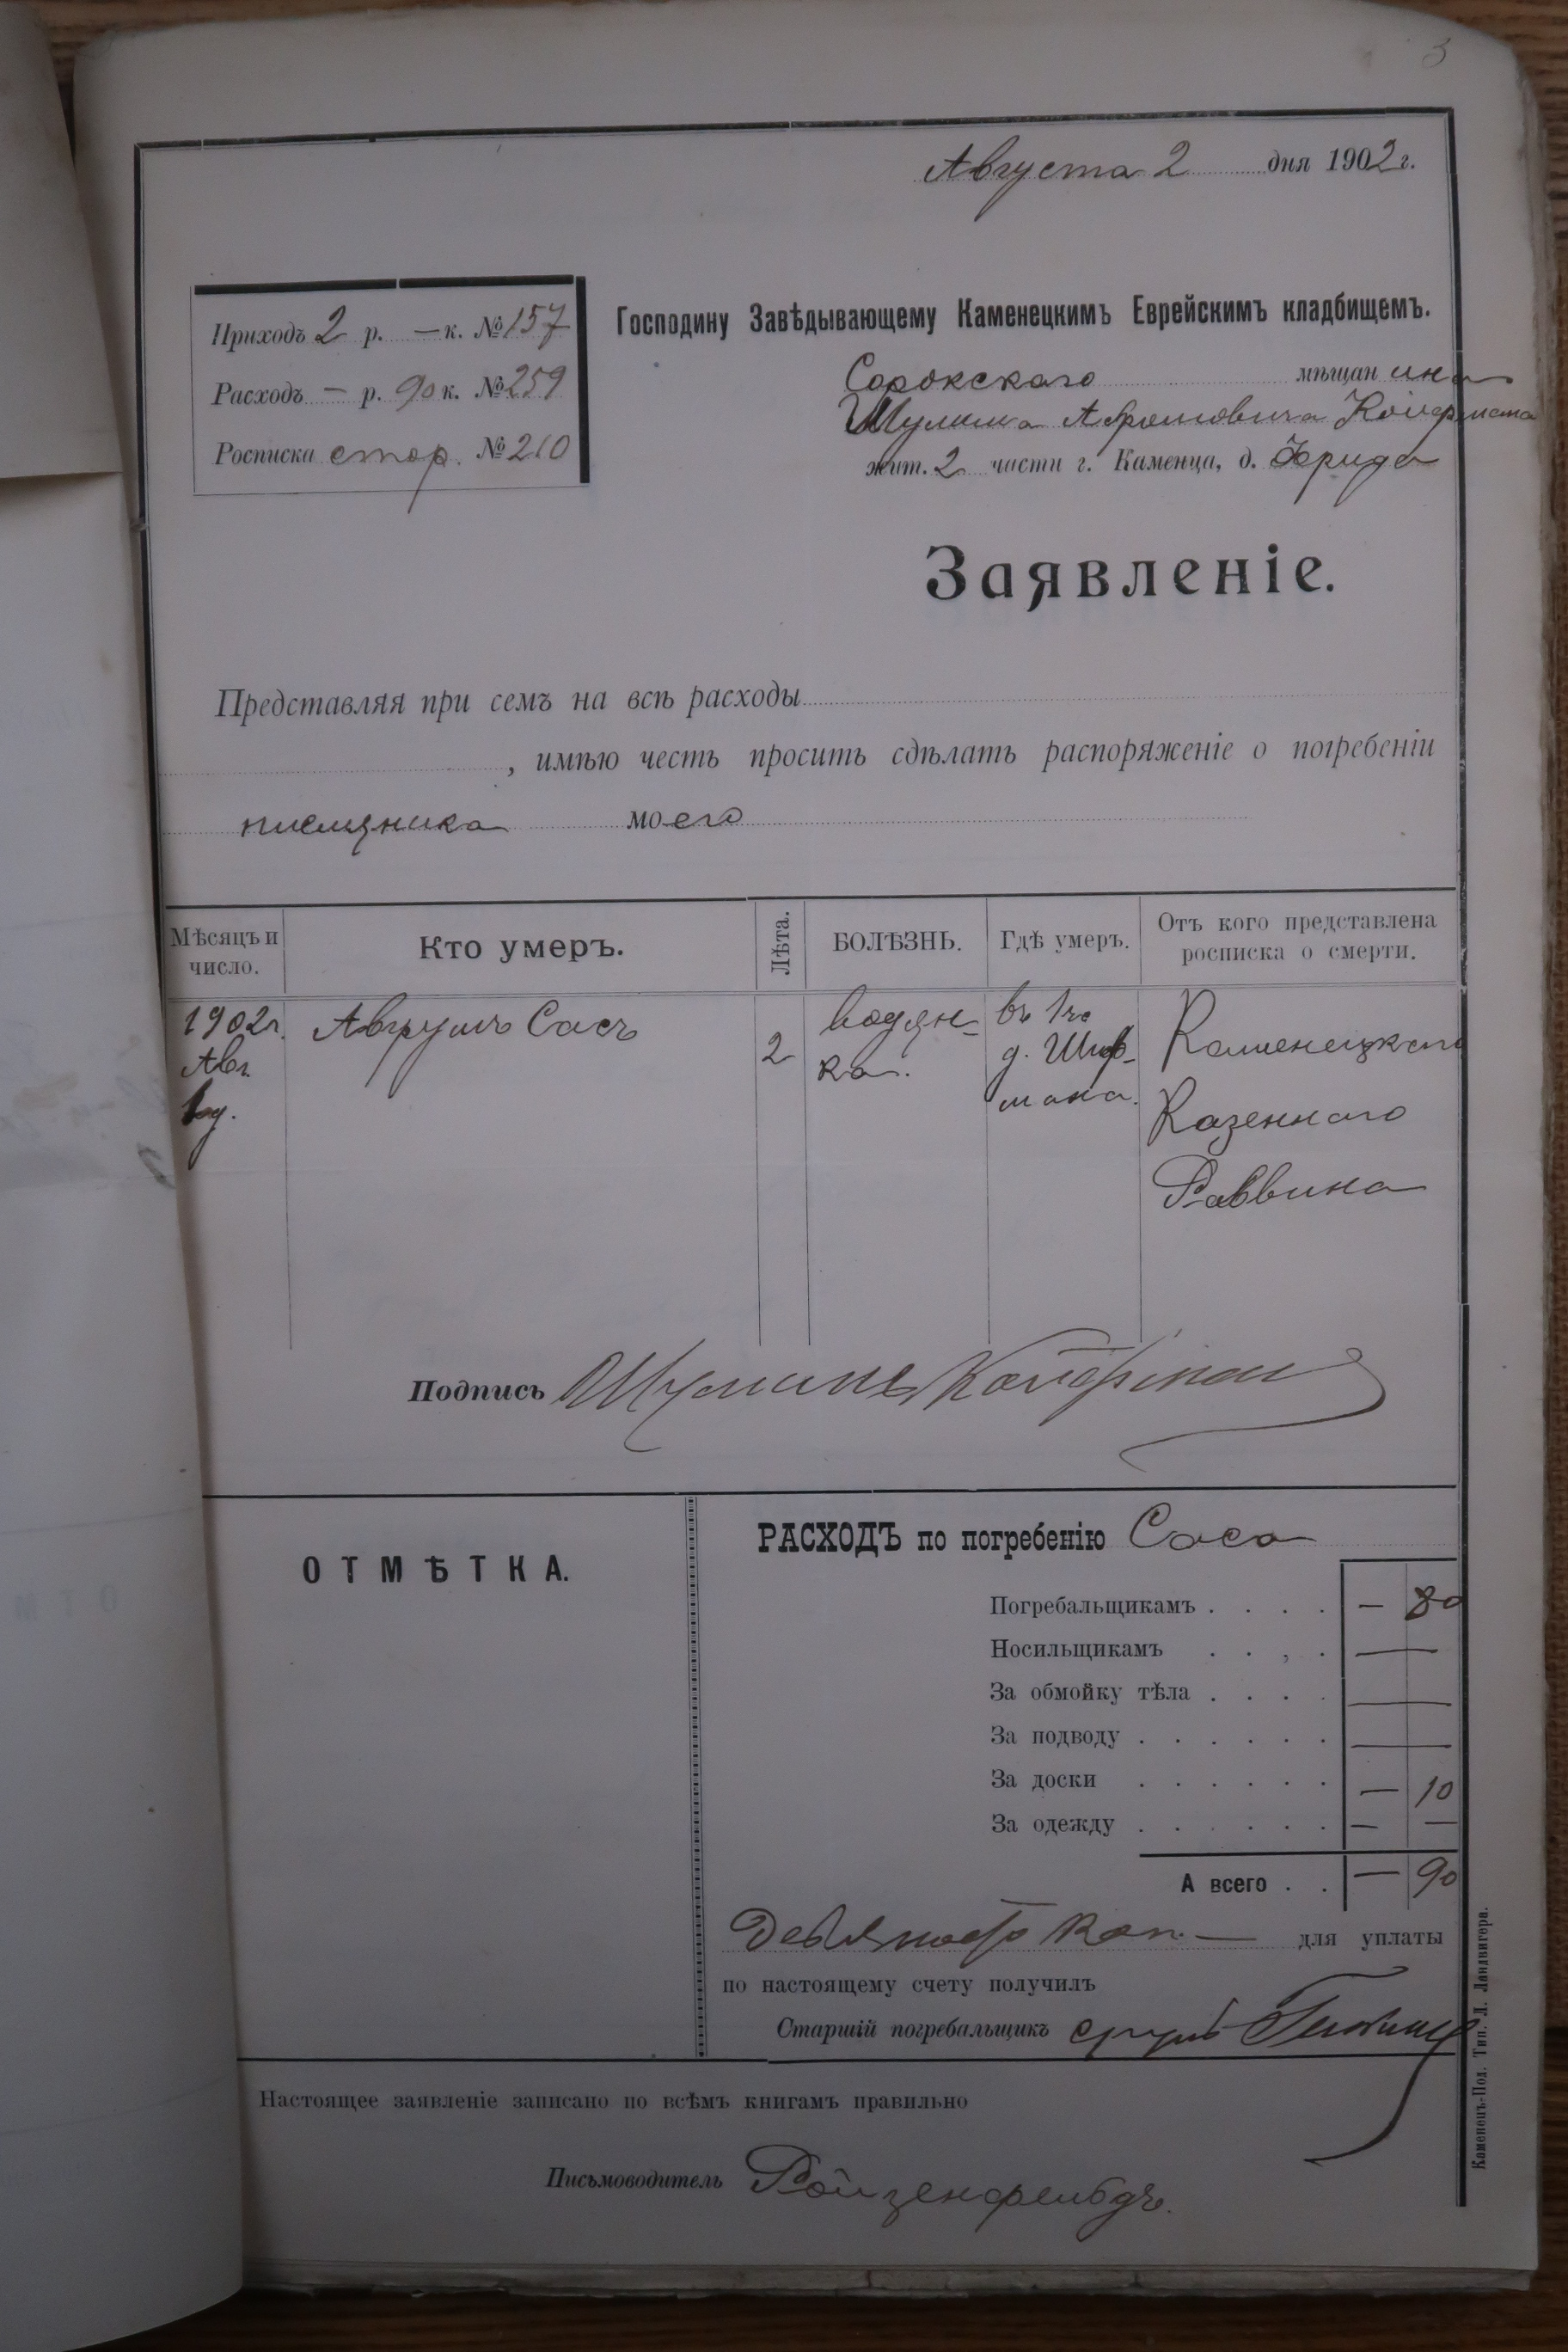 3
Августа 2 дня 1902 г.
Приходъ 2 р. — к. № 157
Расходъ — р. 90 к. № 259
Росписка стор. № 210
Господину Завѣдывающему Каменецкимъ Еврейскимъ кладбищемъ.
Сорокскаго мѣщанина
Шулима
жит. 2 части г. Каменца, д. Фрида
Заявленіе.
Представляя при семъ на всѣ расходы
, имѣю честь просить сдѣлать распоряженіе о погребеніи
племяника моего
Мѣсяцъ и число.
Кто умеръ.
Лѣта.
БОЛѢЗНЬ.
Гдѣ умеръ.
Отъ кого представлена росписка о смерти.
1902 г.
Авг.
Аврумъ Сасъ
2
водян-
ка.
въ 1 ч
д. Шиф-
мана.
Каменецкаго
Казеннаго
Раввина
Подпись Шулимъ
ОТМѢТКА.
РАСХОДЪ по погребенію Саса
Погребальщикамъ . . . . — 80
Носильщикамъ . . , . —
За обмойку тѣла . . . . —
За подводу . . . . . . —
За доски . . . . . . — 10
За одежду . . . . . . — —
А всего . . — 90
Девяносто коп. — для уплаты
по настоящему счету получилъ
Старшій погребальщикъ
Настоящее заявленіе записано по всѣмъ книгамъ правильно
Письмоводитель Ройзенфельдъ.
Каменецъ-Под. Тип. Л. Ландвигера.